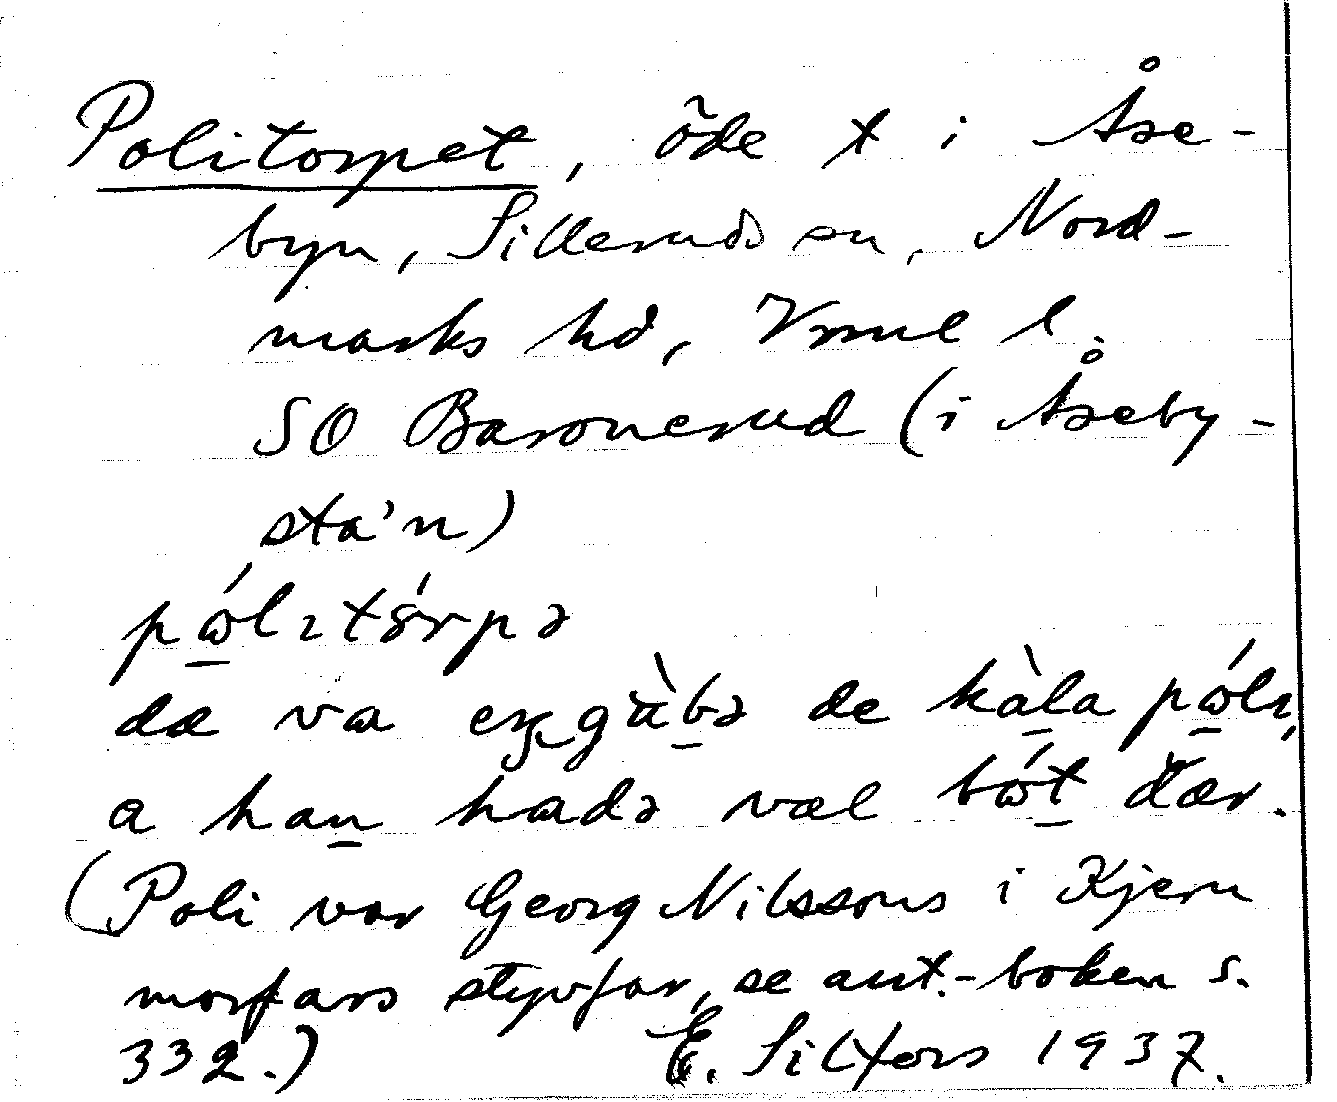 Politorpet, öde t i Åse-
byn, Silleruds sn, Nord-
marks hd, Vrml l.
SO Baronerud (i Åseby-
sta'n)
pώlıtórpə
dæ va eŋ gùbə de kàla pώlı,
a han hadə væl bώt dær.
(Poli var Georg Nilssons i Kjern
morfars styvfar, se ant.-boken s.
332.) E. Silfors 1937.